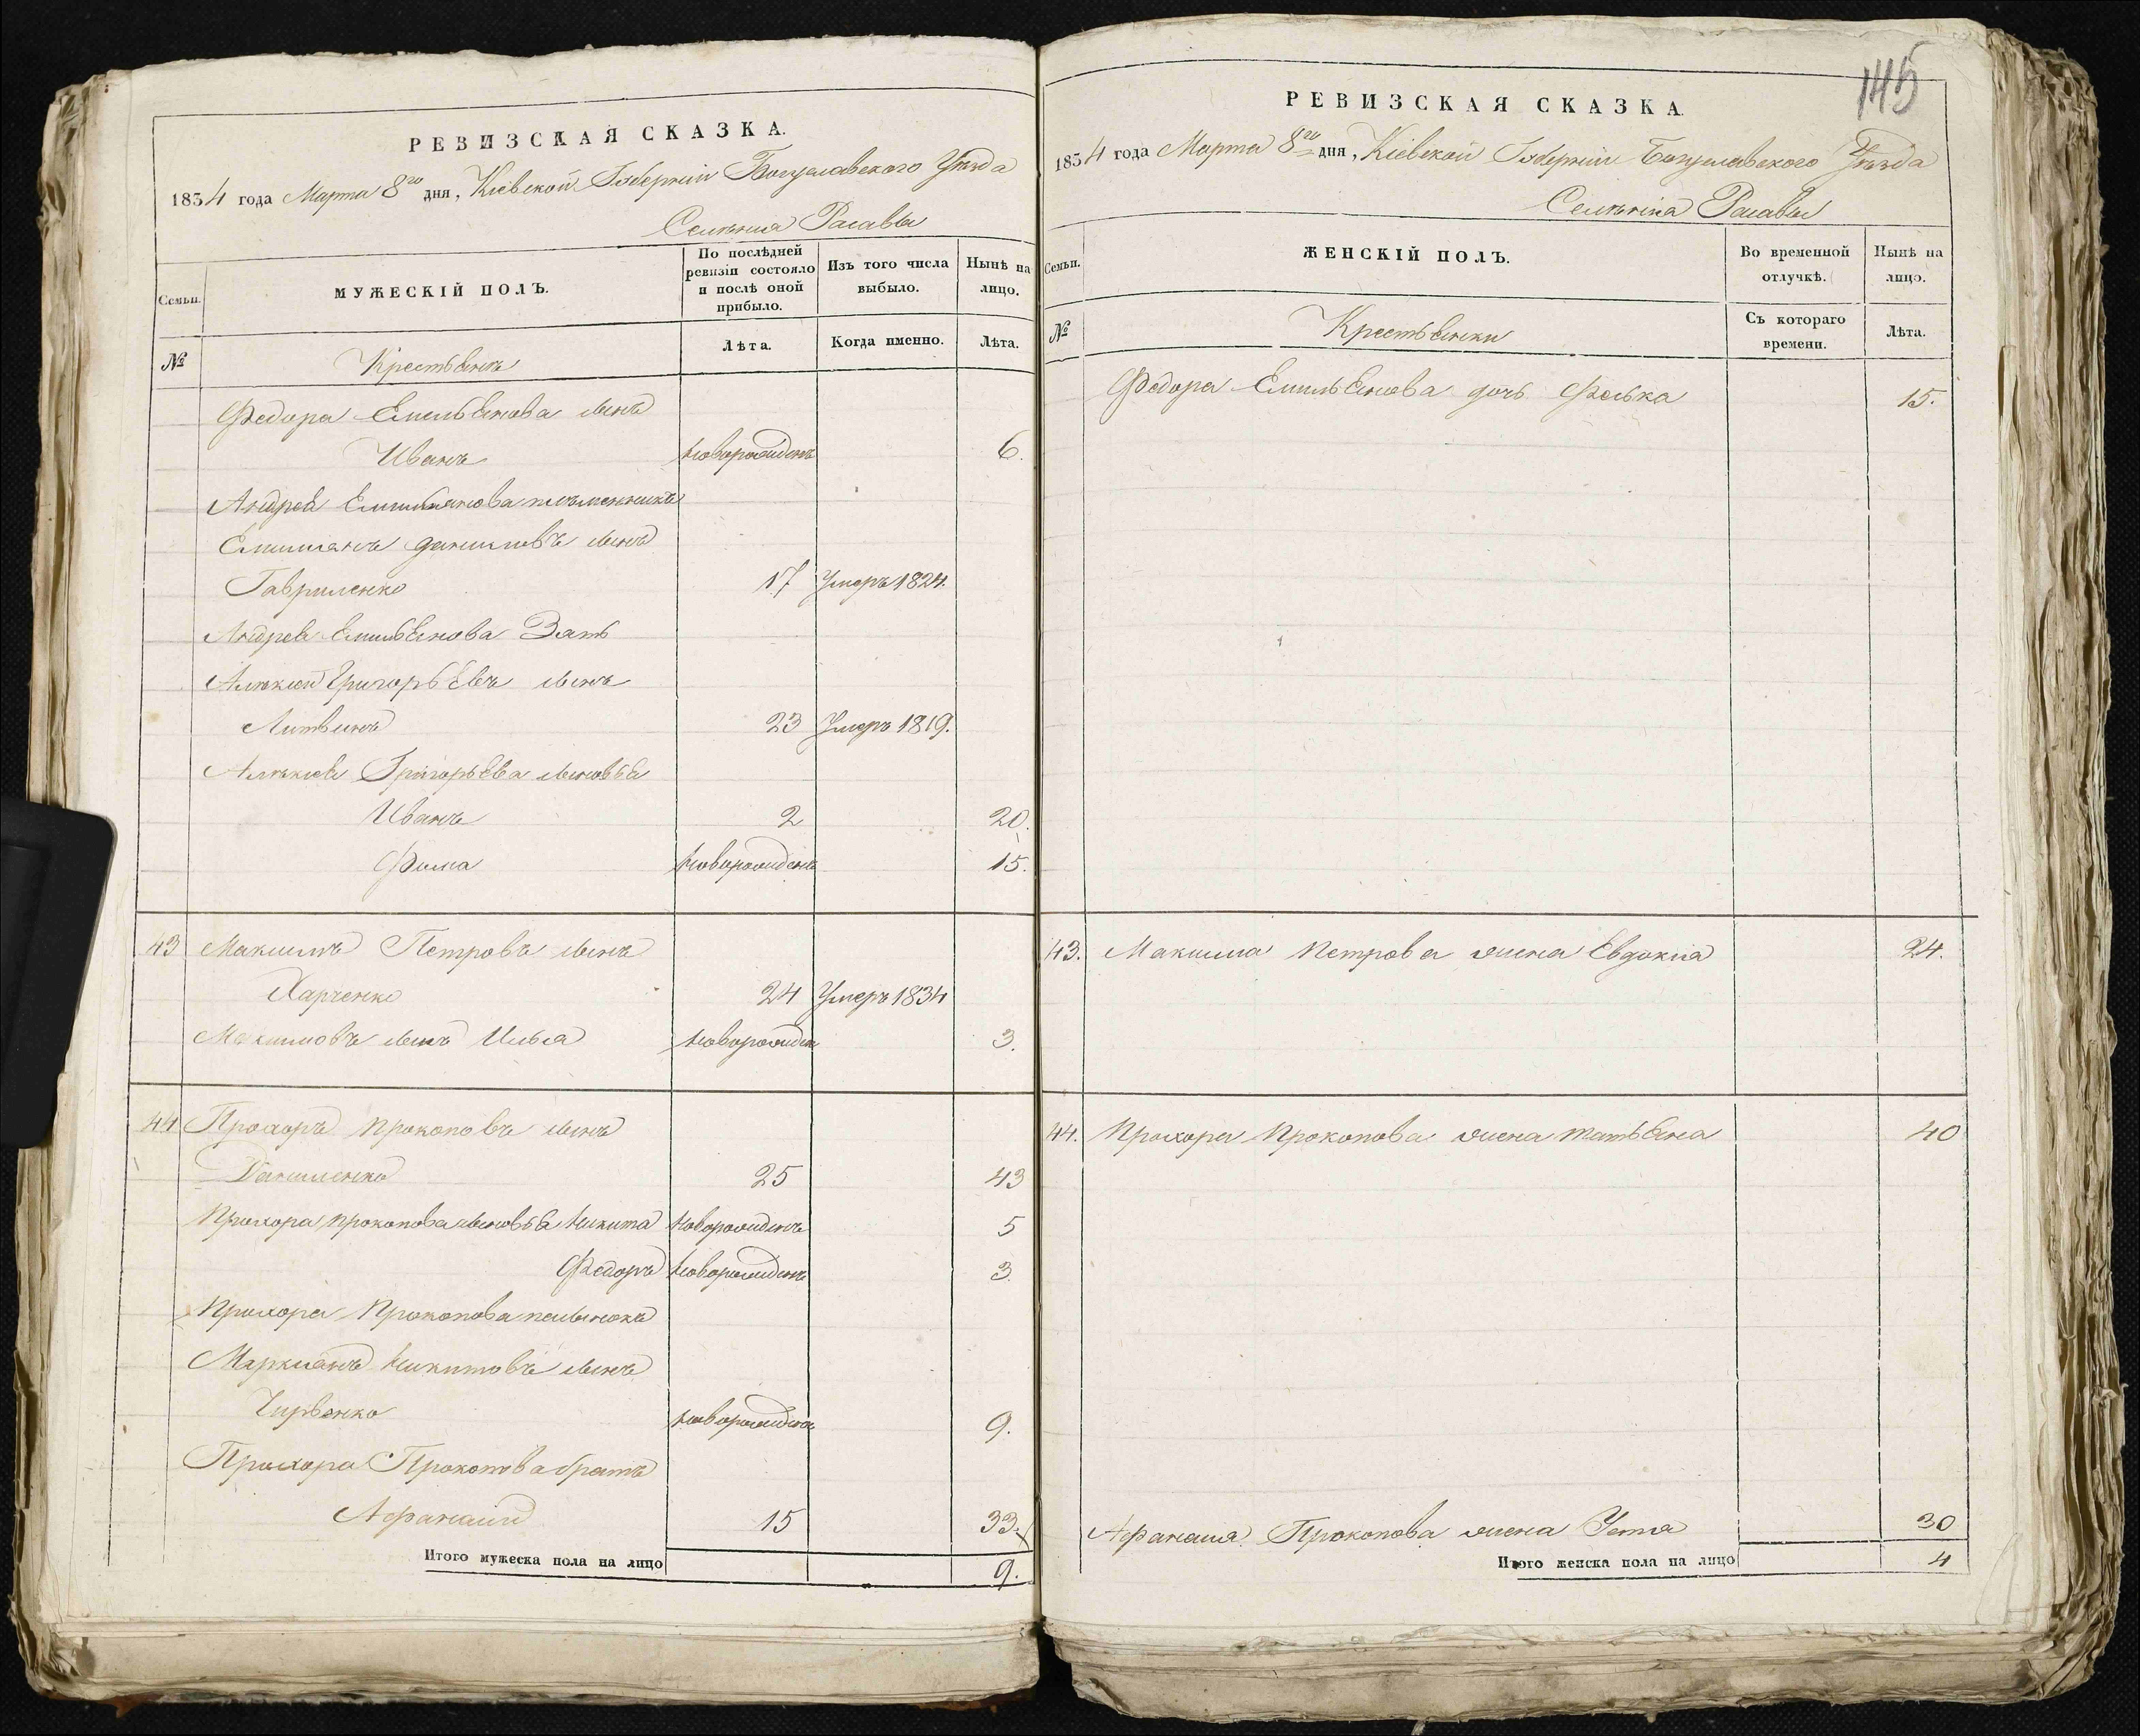 РЕВИЗСКАЯ СКАЗКА.
1834 года Марта 8го дня, Кіевской Губерніи Богуславского Уѣзда
Селѣнія Расавы
Семьи.
МУЖЕСКІЙ ПОЛЪ.
По послѣдней ревизіи состояло и послѣ оной прибыло.
Изъ того числа выбыло.
Нынѣ на лицо.
№
Крестьянъ
Лѣта.
Когда именно.
Лѣта.
Федора Емельянова сынъ
Иванъ новорожденъ 6.
Андрея Емильянова племенникъ
Емилианъ Даниловъ сынъ
Гавриленко 17 Умеръ 1824.
Андрея Емильянова Зять
Алѣксей Григорьевъ сынъ
Литвинъ 23 Умеръ 1819.
Алѣксея Григорьева сыновья
Иванъ 2 20.
Фома Новорожденъ 15.
43 Максимъ Петровъ сынъ
Харченко 24 Умеръ 1834
Максимовъ сынъ Илья новорожден 3.
44 Прохоръ Прокоповъ сынъ
Даниленко 25 43
Прохора Прокопова сыновья Никита Новорожденъ 5
Федоръ новорожденъ 3.
Прохора Прокопова пасынокъ
Маркианъ Никитовъ сынъ
Чирвенко новорожден 9.
Прохора Прокопова братъ
Афанасій 15 33.
Итого мужеска пола на лицо 9.
145
РЕВИЗСКАЯ СКАЗКА.
1834 года Марта 8го дня, Кіевской Губерніи Богуславского Уѣзда
Селѣнія Расавы
Семьи.
ЖЕНСКІЙ ПОЛЪ.
Во временной отлучкѣ.
Нынѣ на лицо.
№
Крестьянки
Съ котораго времени.
Лѣта.
Федора Емильянова дочь Феська 15.
43. Максима Петрова жена Евдокія 24.
44. Прохора Прокопова жена Татьяна 40
Афанасія Прокопова жена Устя 30
Итого женска пола на лицо 4